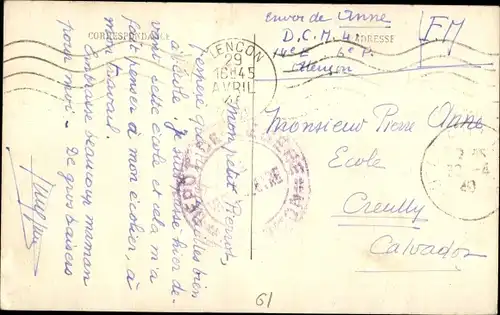 CORRESPONDANCE
ADRESSE
Envoi de Anne
D.C.M. 4
14e E 6e P.
Alençon
FM
ALENCON
29
16H45
AVRIL
Monsieur Pierre Anne
Ecole
Creully
Calvados
Mon petit Pierrot,
J'espère que tu travailles bien
à l'école. Je suis passé hier de-
vant cette école et cela m'a
fait penser à mon écolier, à
mon travail.
Embrasse beaucoup maman
pour moi - De gros baisers
61